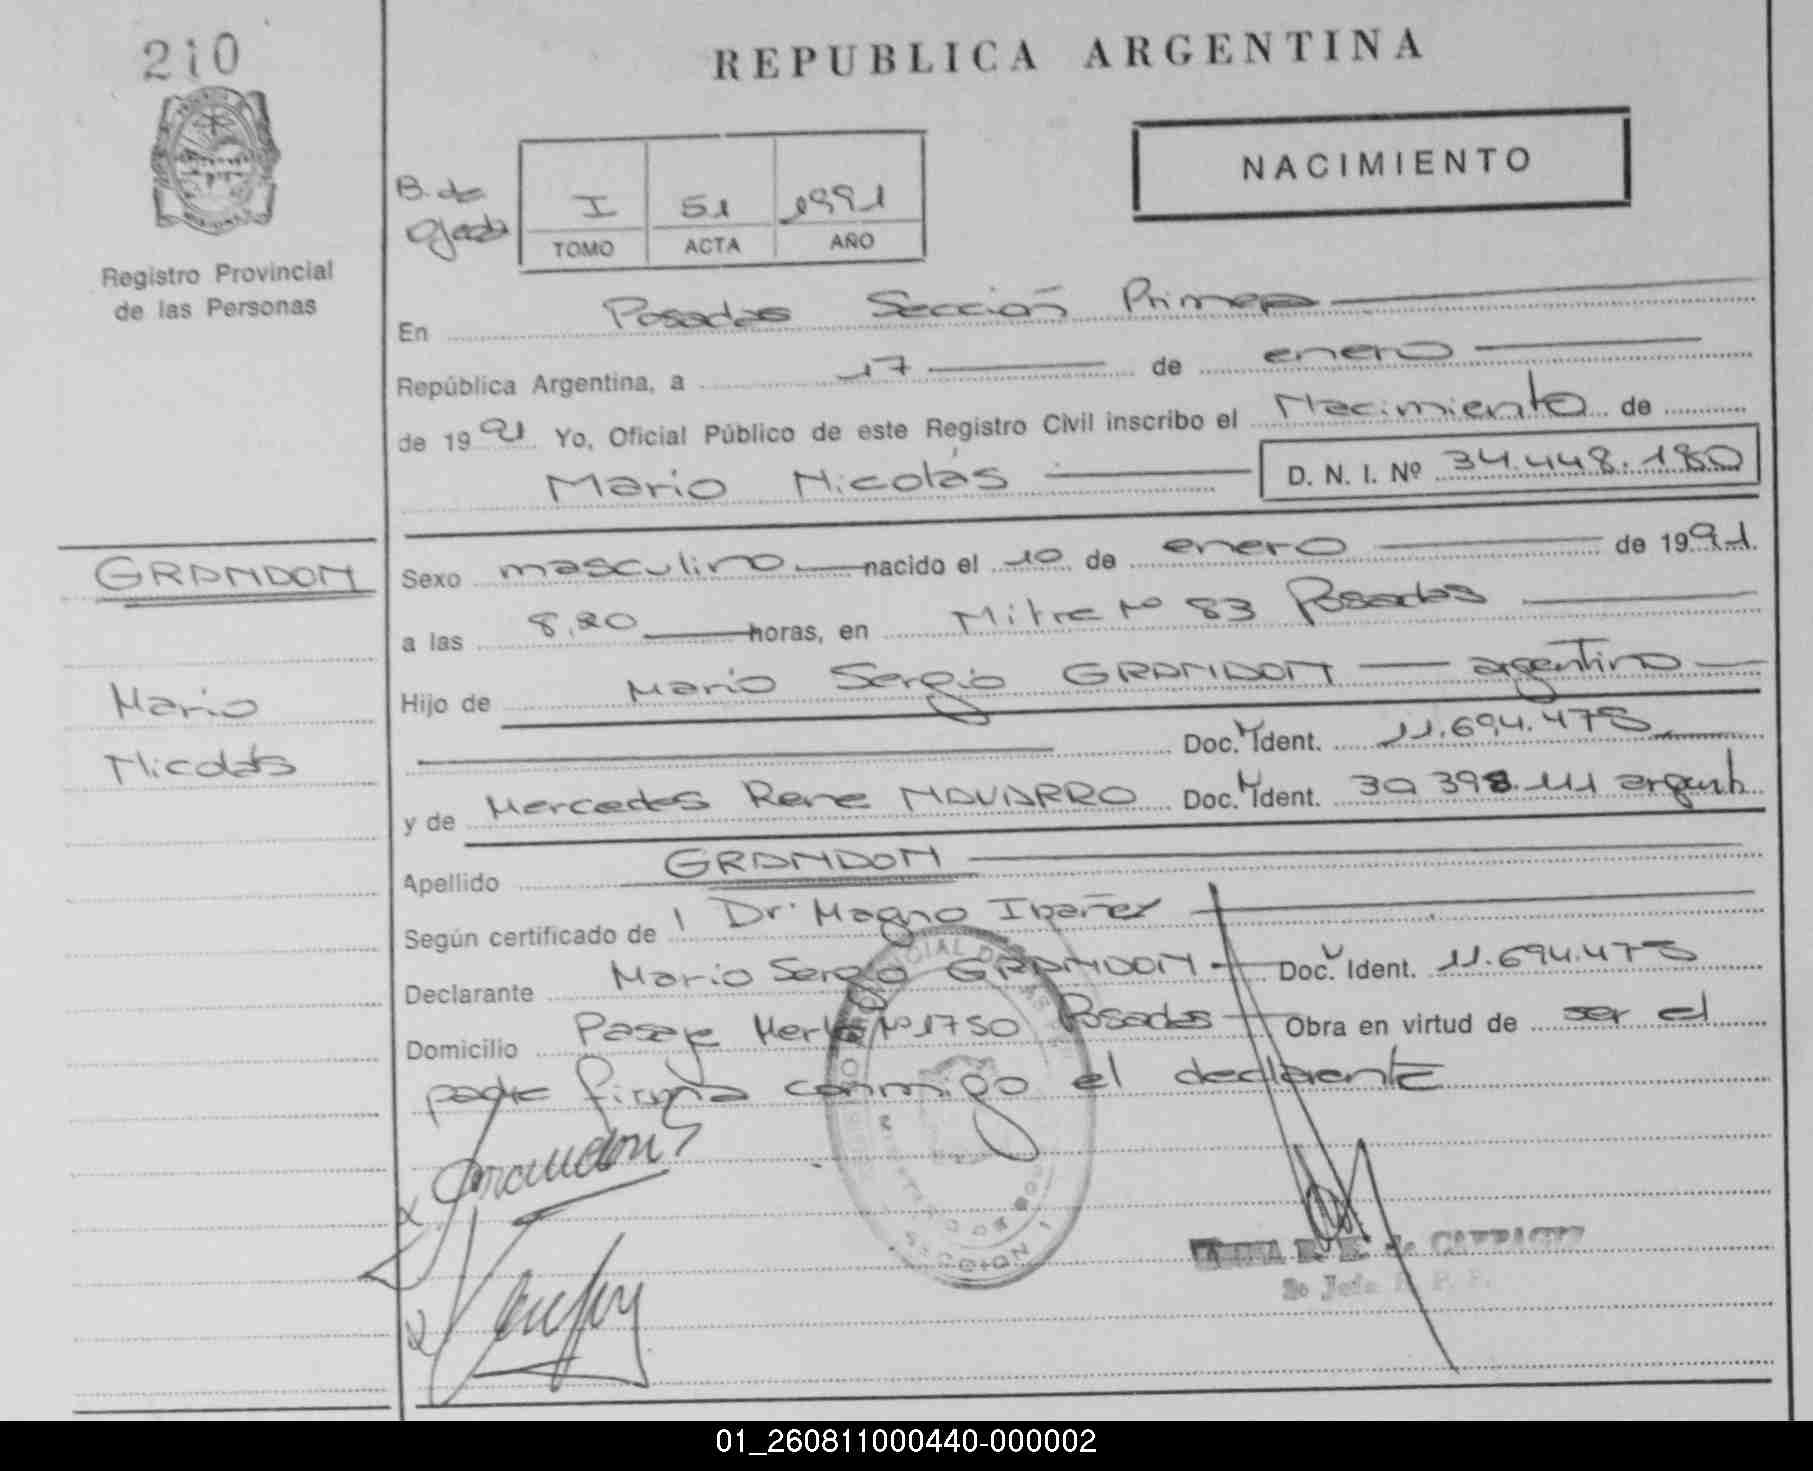 210
REPUBLICA ARGENTINA
NACIMIENTO
B. de
I 51 1991
TOMO ACTA AÑO
Registro Provincial
de las Personas
En Posadas Sección Primera
República Argentina, a 17 de enero
de 1991 Yo, Oficial Público de este Registro Civil inscribo el Nacimiento de
Mario Nicolás D. N. I. Nº 34.448.180
GRANDON
Sexo masculino nacido el 10 de enero de 1991.
a las 8,20 horas, en Mitre Nº 83 Posadas
Mario
Hijo de Mario Sergio GRANDON argentino
Nicolás
Doc. Ident. 11.694.475
y de Mercedes Rene NAVARRO Doc. Ident.
Apellido GRANDON
Según certificado de Dr. Magno Ibañez
Declarante Mario Sergio GRANDON Doc. Ident. 11.694.475
Domicilio Pasaje Nº 1750 Posadas Obra en virtud de ser el
padre firma conmigo el declarante
Grandon
SECCION 1
de
2o Jefe R. P. P.
01_260811000440-000002